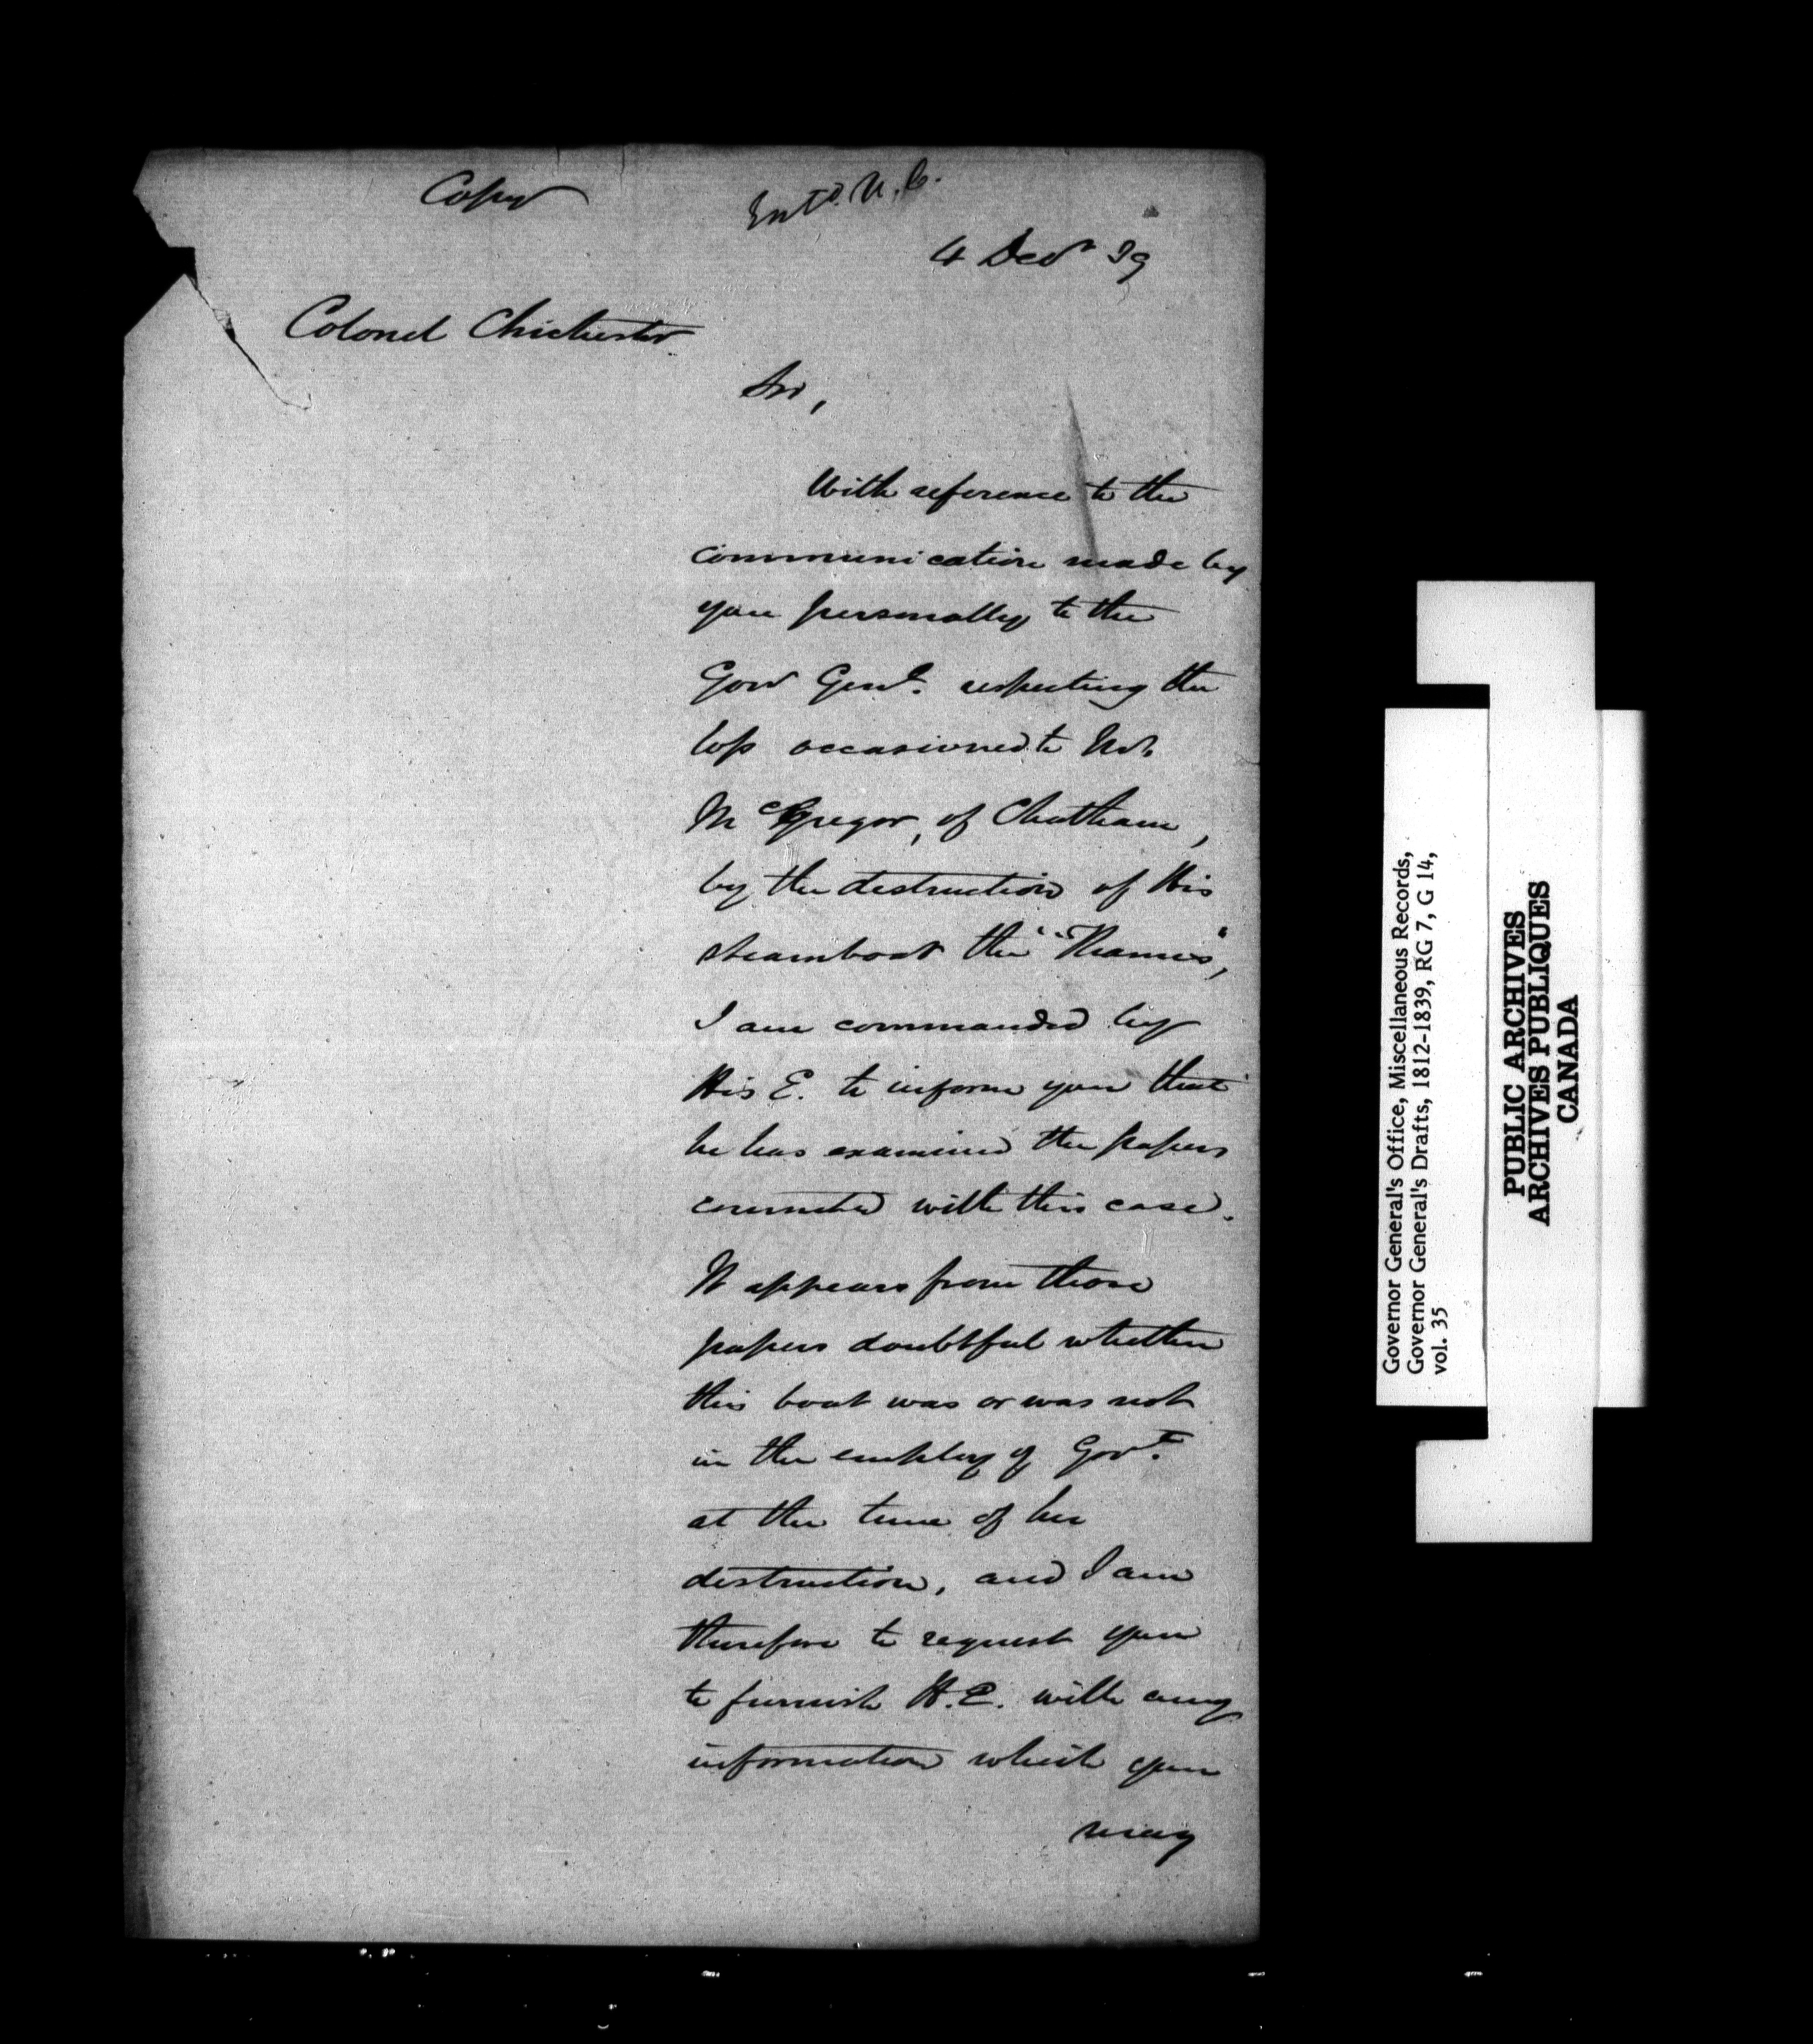 Copy
Entd. U.C.
4 Decr 39
Colonel Chichester
Sir,
With reference to the
communication made by
you personally to the
Govr Genl. respecting the
loss occasioned to Mr.
McGregor, of Chatham,
by the destruction of His
steamboat the "Thames",
I am commanded by
His E. to inform you that
he has examined the papers
connected with this case.
It appears from those
papers doubtful whether
this boat was or was not
in the employ of Govt.
at the time of her
destruction, and I am
therefore to request you
to furnish H.E. with any
information which you
may
Governor General's Office, Miscellaneous Records,
Governor General's Drafts, 1812-1839, RG 7, G 14,
vol. 35
PUBLIC ARCHIVES
ARCHIVES PUBLIQUES
CANADA